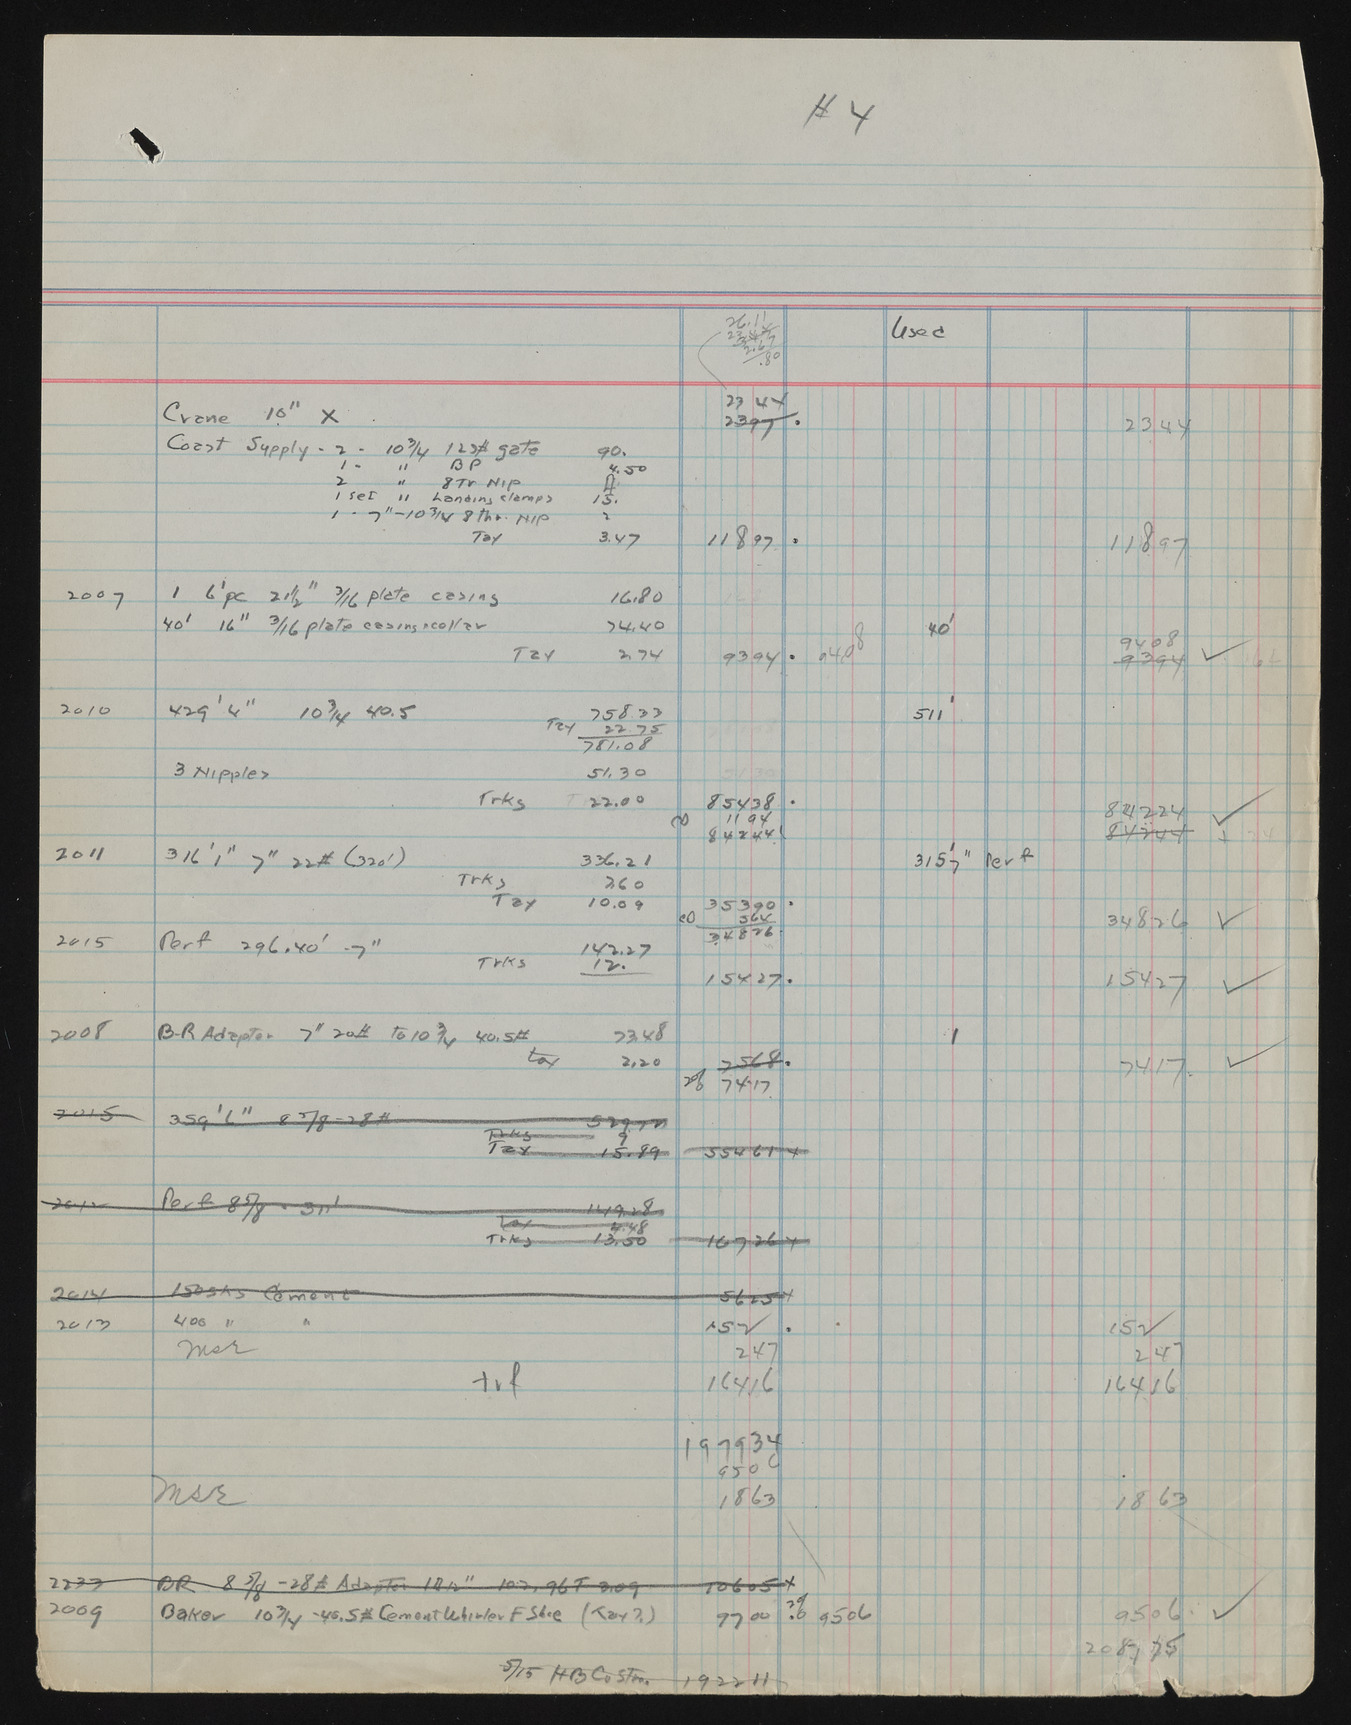 # 4
26.11
2.67
.80
Used
2344
Crane 10" X 2397 . 2344
Coast Supply - 2 - 10 3/4 125# gate 90.
1 - " BP 4.50
2 " 8Tr Nip
1 set " Landing clamps 15.
1 - 7" - 10 3/4 8 thr. NIP 2
Tax 3.47 11897 . 11897
2007 1 6' pc 21 1/2" 3/16 plate casing 16.80
40' 16" 3/16 plate casing & collar 74.40 40' 9408
Tax 2.74 9394 . 9408 9394 ✓
2010 429' 4" 10 3/4 40.5 758.33 511'
Tax 22.75
781.08
3 Nipples 51.30
Trks 22.00 85438 . 84224 ✓
1194
84244 84244
2011 316' 1" 7" 22# (320') 336.21 315' 7" Perf
Trks 7.60
Tax 10.09 35390 .
564 34826 ✓
34826
2015 Perf 296.40' - 7" 142.27
Trks 12. 15427 . 15427 ✓
2008 B-R Adaptor 7" 20# to 10 3/4 40.5# 73.48 1
tax 2.20 7568 . 7417 ✓
7417
2015 359' 6" 8 5/8 - 28# 529.72
Trks 9
Tax 15.89 55461 x
2012 Perf 8 5/8 - 311' 149.28
Tax 4.48
Trks 13.50 16726 x
2014 150 sks Cement 5625 x
2013 400 " " 152 ✓ . 152 ✓
MSR 247 247
trf 16416 16416
197934
9506
MSR 1863 1863
2233 BR 8 5/8 - 28# Adaptor 102.96 T 3.09 10605 x
2009 Baker 10 3/4 - 40.5# Cement Whirler F Shoe (Tax?) 9700 9506 9506 ✓
208,175
5/15 HB Co Stm. 192211